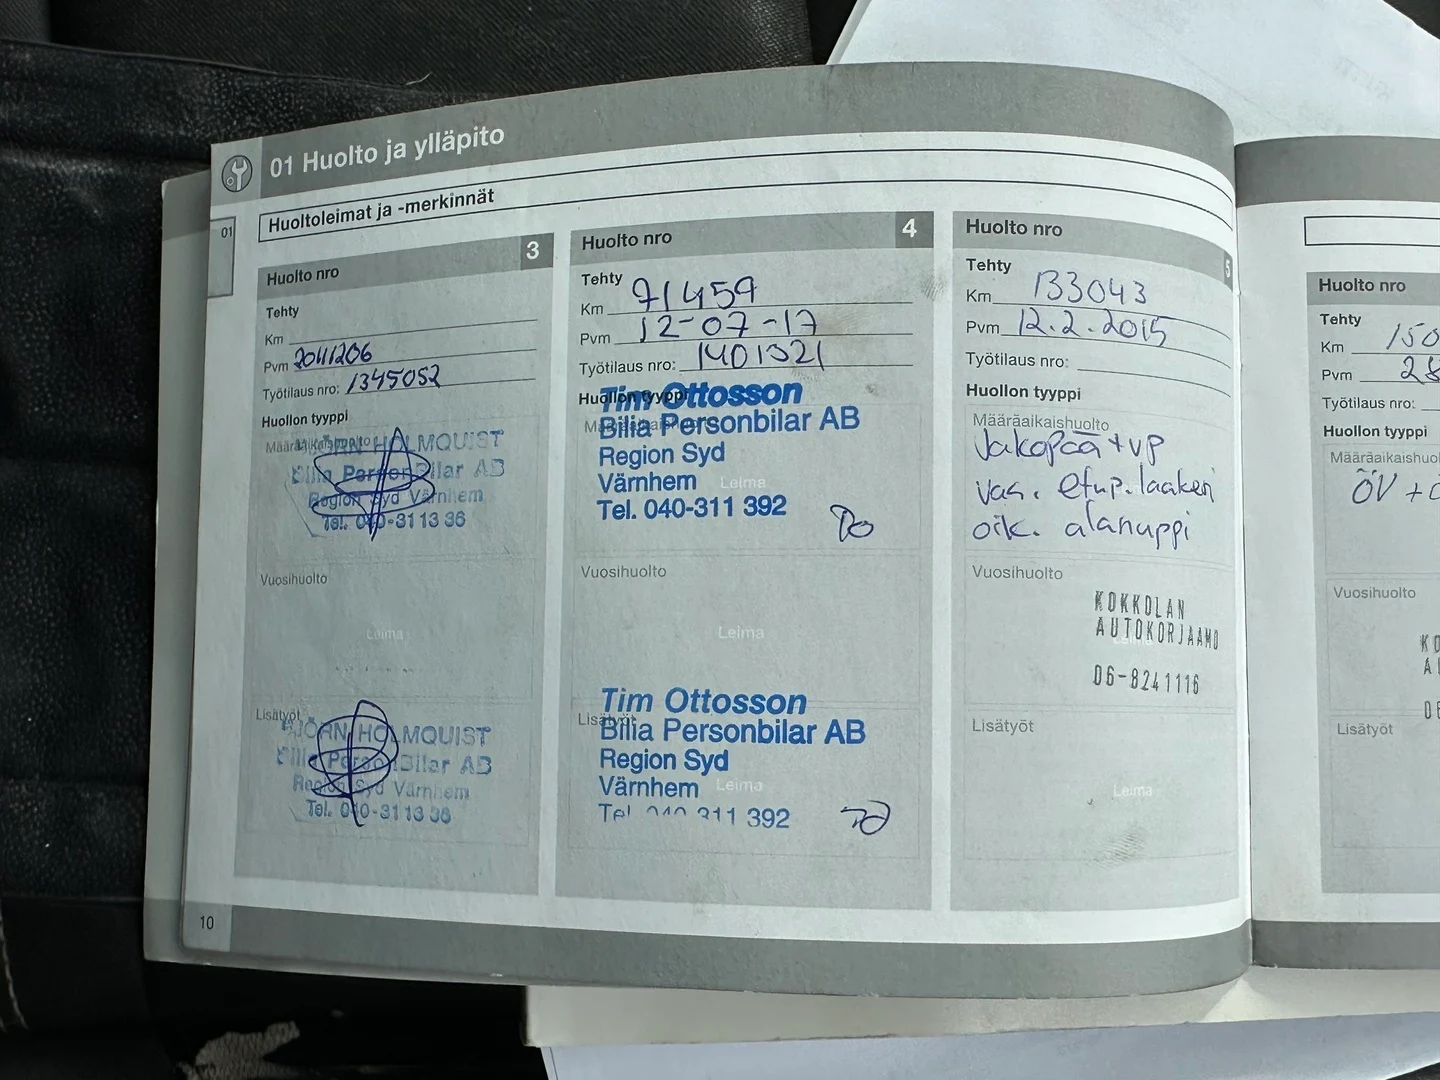 01 Huolto ja ylläpito
Huoltoleimat ja -merkinnät
01
Huolto nro 3
Tehty
Km
Pvm 2011206
Työtilaus nro: 1345052
Huollon tyyppi
Määräaikaishuolto
BJÖRN HOLMQUIST
Bilia PersonBilar AB
Region Syd Värnhem
Tel. 040-31 13 36
Vuosihuolto
Leima
Lisätyöt
BJÖRN HOLMQUIST
Bilia PersonBilar AB
Region Syd Värnhem
Tel. 040-31 13 36
10
Huolto nro 4
Tehty
Km 91459
Pvm 12-07-17
Työtilaus nro: 1401321
Huollon tyyppi
Tim Ottosson
Bilia Personbilar AB
Region Syd
Värnhem
Leima
Tel. 040-311 392
Vuosihuolto
Leima
Lisätyöt
Tim Ottosson
Bilia Personbilar AB
Region Syd
Värnhem
Leima
Tel 040 311 392
Huolto nro 5
Tehty
Km 133043
Pvm 12.2.2015
Työtilaus nro:
Huollon tyyppi
Määräaikaishuolto
Jakopää + vp
vas. etup. laakeri
oik. alanuppi
Vuosihuolto
KOKKOLAN
AUTOKORJAAMO
06-8241116
Lisätyöt
Leima
Huolto nro
Tehty
Km 150
Pvm 28
Työtilaus nro:
Huollon tyyppi
Määräaikaishuol
ÖV +
Vuosihuolto
KO
A
0
Lisätyöt